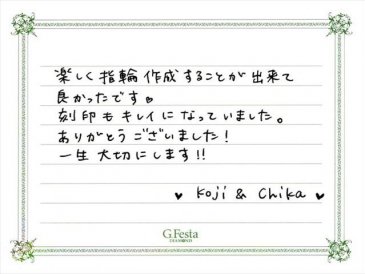 楽しく指輪作成することが出来て
良かったです。
刻印もキレイになっていました。
ありがとうございました!
一生大切にします!!
♥ Koji & Chika ♥
G.Festa
DIAMOND